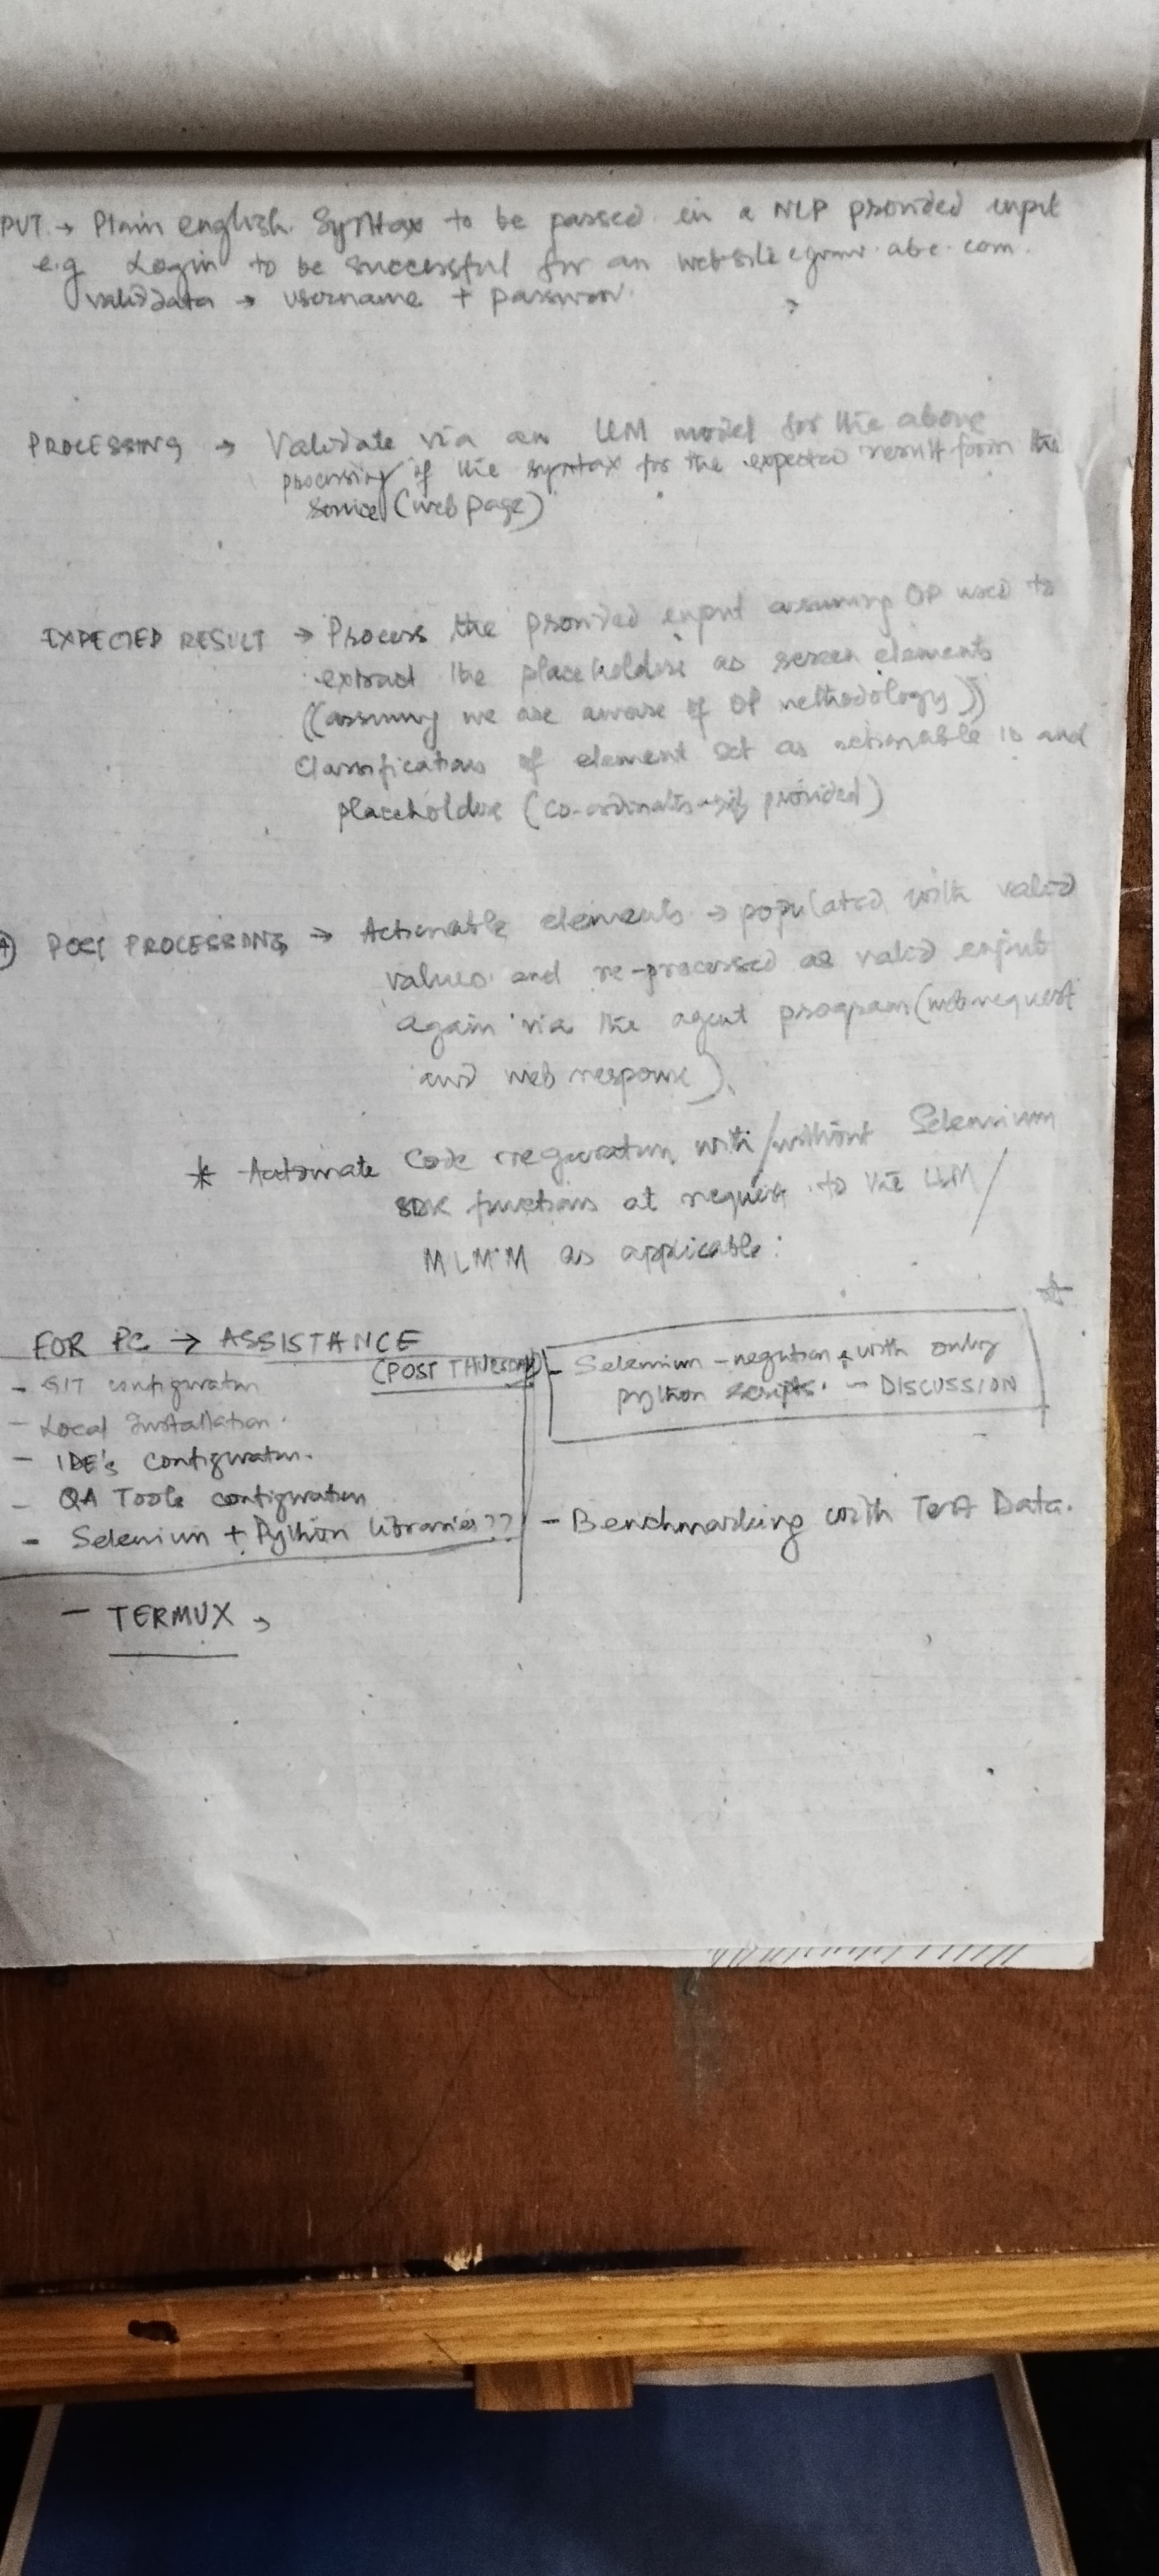 PUT → Plain english Syntax to be passed in a NLP provided input
e.g Login to be successful for an website abc.com.
validdata → username + passwor
PROCESSING → Validate via an LLM model for the above
processing of the syntax for the expected result form the
(web page)
EXPECTED RESULT → Process the provided input assuming OP used to
extract the placeholders as screen elements
((assuming we are aware of OP methodology))
Classifications of element set as actionable and
placeholders (co-ordinates - if provided)
A POST PROCESSING → Actionable elements → populated with valid
values and re-processed as valid input
again via the agent program (web request
and web response).
* Automate Code with/without Selenium
SDK functions at request to the LLM/
MLMM as applicable:
FOR PC → ASSISTANCE
(POST THURSDAY)
- GIT configuration
- Local Installation.
- IDE's configuration.
- QA Tools configuration
- Selenium + Python libraries??
- TERMUX →
- Selenium - with only
python scripts. - DISCUSSION
- Benchmarking with Test Data.